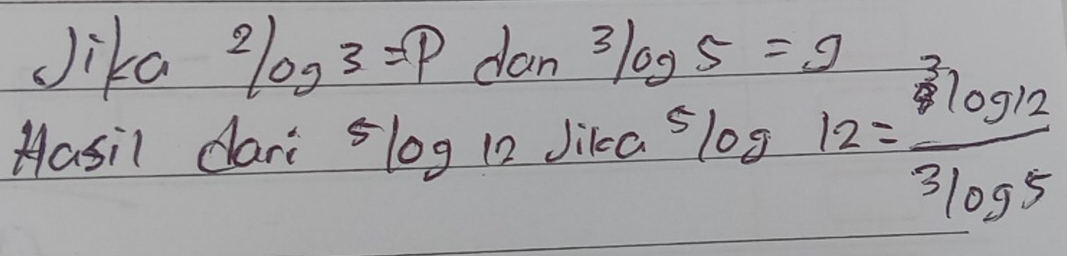 Jika ²log 3 = P dan ³log 5 = g
Hasil dari ⁵log 12 Jika ⁵log 12 = ³log12 / ³log5